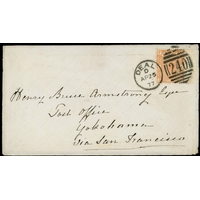 DEAL
D
AP 28
77
240
Henry Bruce Armstrong Esqre
Post Office
Yokohama
Via San Francisco